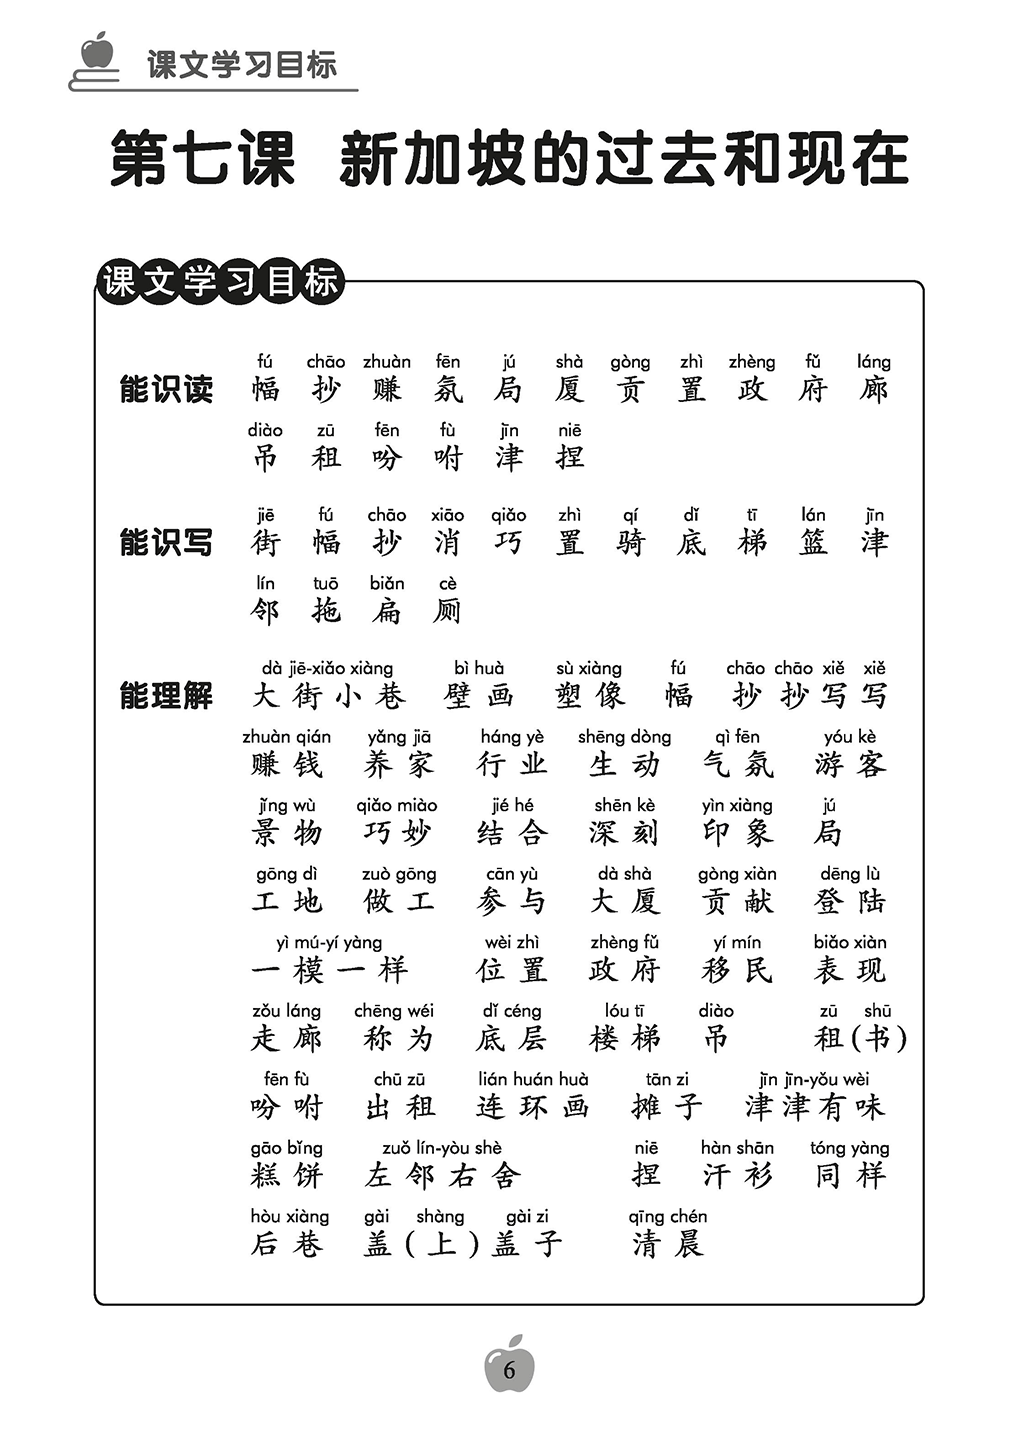 课文学习目标
第七课 新加坡的过去和现在
课文学习目标
fú chāo zhuàn fēn jú shà gòng zhì zhèng fǔ láng
能识读 幅 抄 赚 氛 局 厦 贡 置 政 府 廊
diào zū fēn fù jīn niē
吊 租 吩 咐 津 捏
jiē fú chāo xiāo qiǎo zhì qí dǐ tī lán jīn
能识写 街 幅 抄 消 巧 置 骑 底 梯 篮 津
lín tuō biǎn cè
邻 拖 扁 厕
dà jiē-xiǎo xiàng bì huà sù xiàng fú chāo chāo xiě xiě
能理解 大街小巷 壁画 塑像 幅 抄抄写写
zhuàn qián yǎng jiā háng yè shēng dòng qì fēn yóu kè
赚钱 养家 行业 生动 气氛 游客
jǐng wù qiǎo miào jié hé shēn kè yìn xiàng jú
景物 巧妙 结合 深刻 印象 局
gōng dì zuò gōng cān yù dà shà gòng xiàn dēng lù
工地 做工 参与 大厦 贡献 登陆
yì mú-yí yàng wèi zhì zhèng fǔ yí mín biǎo xiàn
一模一样 位置 政府 移民 表现
zǒu láng chēng wéi dǐ céng lóu tī diào zū shū
走廊 称为 底层 楼梯 吊 租(书)
fēn fù chū zū lián huán huà tān zi jīn jīn-yǒu wèi
吩咐 出租 连环画 摊子 津津有味
gāo bǐng zuǒ lín-yòu shè niē hàn shān tóng yàng
糕饼 左邻右舍 捏 汗衫 同样
hòu xiàng gài shàng gài zi qīng chén
后巷 盖(上)盖子 清晨
6